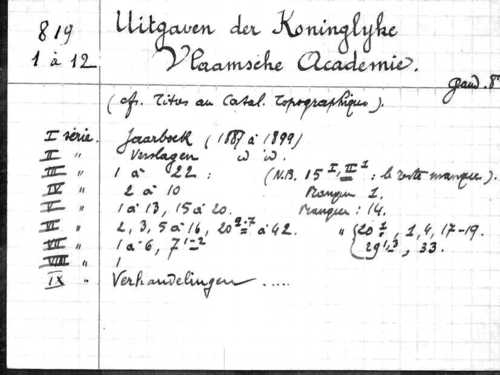 819
1 à 12
Uitgaven der Koninglyke
Vlaamsche Academie.
Gand. 8°
(cfr. Titres au Catal. Topographique).
I série. Jaarboek (1887 à 1899)
II " Verslagen id id.
III " 1 à 22 : (N.B. 15 I, II 1 : le reste manque).
IV " 2 à 10 Manque 1.
V " 1 à 13, 15 à 20. Manque : 14.
VI " 2, 3, 5 à 16, 20 2-7 à 42. " 20 1, 1, 4, 17-19.
VII " 1 à 6, 7 1-2 29 1-3, 33.
VIII " 1
IX " Verhandelingen .....